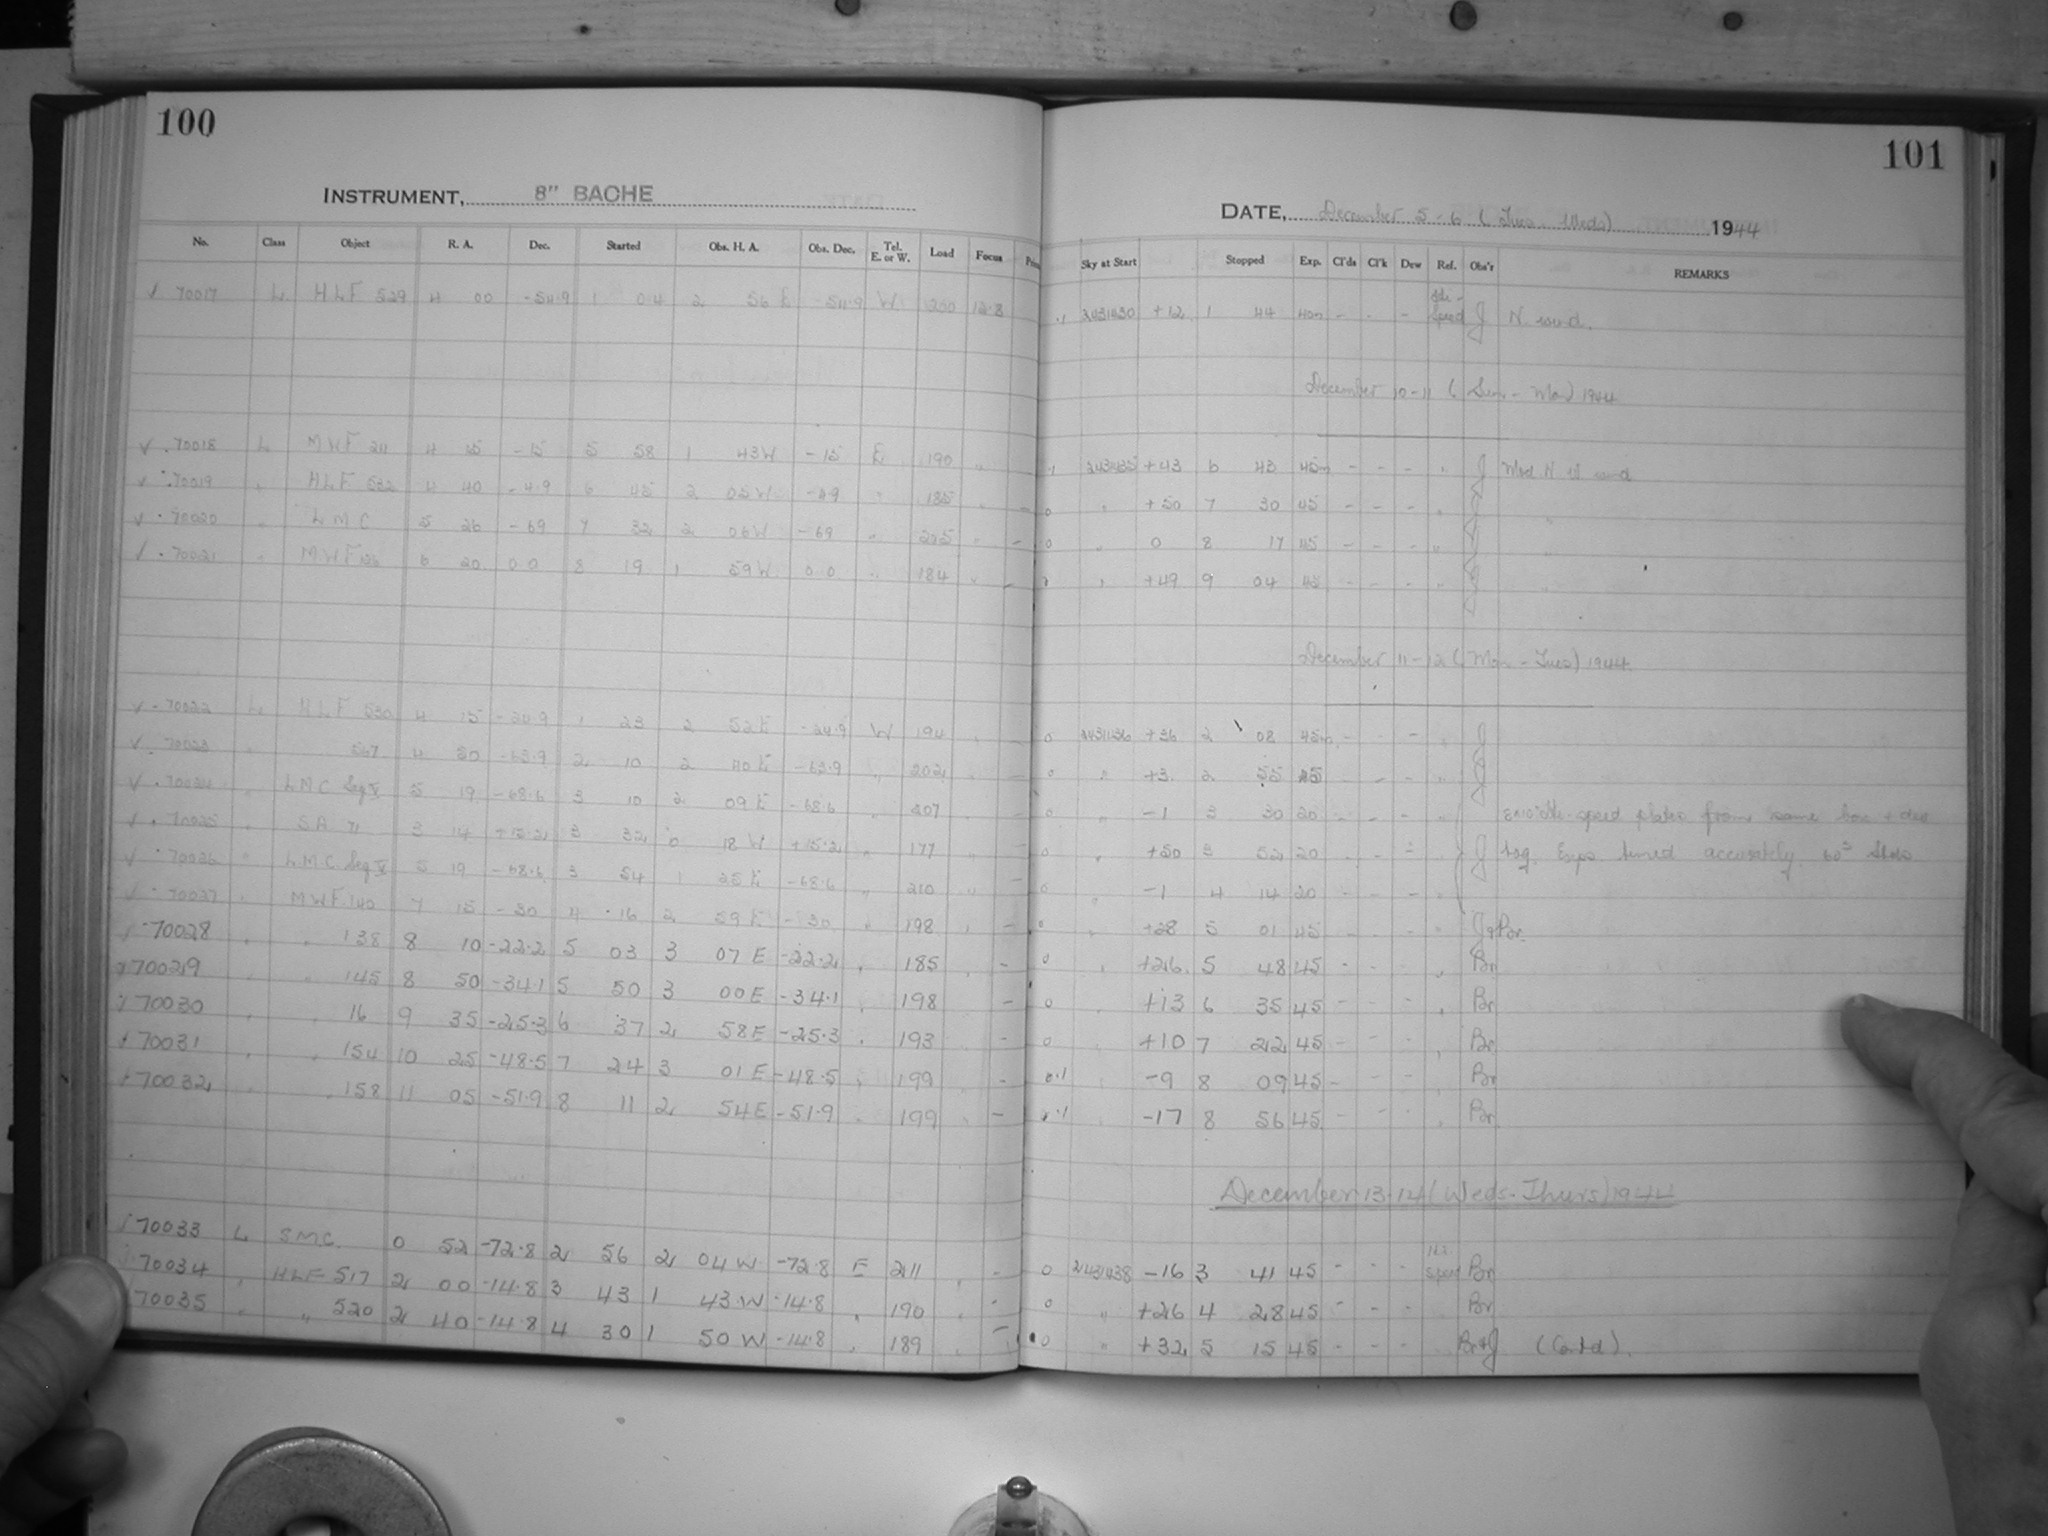 100
INSTRUMENT, 8" BACHE
No. Class Object R. A. Dec. Started Obs. H. A. Obs. Dec. Tel. E. or W. Load Focus
√ 70017 L HLF 529 4 00 -54.9 1 04 2 56 E -54.9 W 200 12.8
√ . 70018 L MWF 211 4 15 -15 5 58 1 43W -15 E 190
√ . 70019 HLF 532 4 40 -4.9 6 45 2 05W -4.9 185
√ . 70020 LMC 5 26 -69 7 32 2 06W -69 205
√ . 70021 MWF 6 20 0.0 8 19 1 59W 0.0 184
√ - 70022 L HLF 530 4 15 -24.9 1 23 2 52E -24.9 W 194
√ . 70023 567 4 50 -63.9 2 10 2 40E -63.9 202
√ . 70024 LMC Seq V 5 19 -68.6 3 10 2 09 E -68.6 207
√ . 70025 SA 71 3 14 +15.2 3 32 0 18 W +15.2 177
√ . 70026 LMC Seq V 5 19 -68.6 3 54 1 25 E -68.6 210
√ . 70027 MWF 140 7 15 -30 4 16 2 59 E -30 198
70028 138 8 10 -22.2 5 03 3 07 E -22.2 185 -
70029 145 8 50 -34.1 5 50 3 00E -34.1 198 -
70030 16 9 35 -25.3 6 37 2 58E -25.3 193 -
70031 154 10 25 -48.5 7 24 3 01E -48.5 199 -
70032 158 11 05 -51.9 8 11 2 54E -51.9 199 -
70033 L SMC 0 52 -72.8 2 56 2 04 W -72.8 E 211 -
70034 HLF 517 2 00 -14.8 3 43 1 43 W -14.8 190 -
70035 " 520 2 40 -14.8 4 30 1 50 W -14.8 189 -
101
DATE, December 5-6 (Tues.-Weds) 1944
Sky at Start Stopped Exp. Cl'ds Cl'k Dew Ref. Obs'r REMARKS
.1 2431430 +12 1 44 40m - - - Speed J N. wind.
December 10-11 (Sun - Mon) 1944
.1 2431435 +43 6 43 45m - - - " J Mod. N. W wind
0 " +50 7 30 45 - - - " J "
0 " 0 8 17 45 - - - " J "
" +49 9 04 45 - - - " J "
December 11-12 (Mon - Tues) 1944
0 2431436 +36 2 08 45m - - " J
0 " +3 2 55 45 - - - " J
0 " -1 3 30 20 - - - speed plates from same box + dev
0 " +50 3 52 20 - - - J tog. Exps timed accurately. 60s
0 " -1 4 14 20 - - -
0 " +28 5 01 45 - - - J+Br.
0 +26 5 48 45 - - - Br
0 +13 6 35 45 - - - Br
0 +10 7 22 45 - - - Br
0.1 -9 8 09 45 - - - Br
.1 -17 8 56 45 - - Br
December 13-14 (Weds-Thurs) 1944
0 2431438 -16 3 41 45 - - - speed Br
0 " +26 4 28 45 - - - Br
0 " +32 5 15 45 - - - Br+J (Contd).